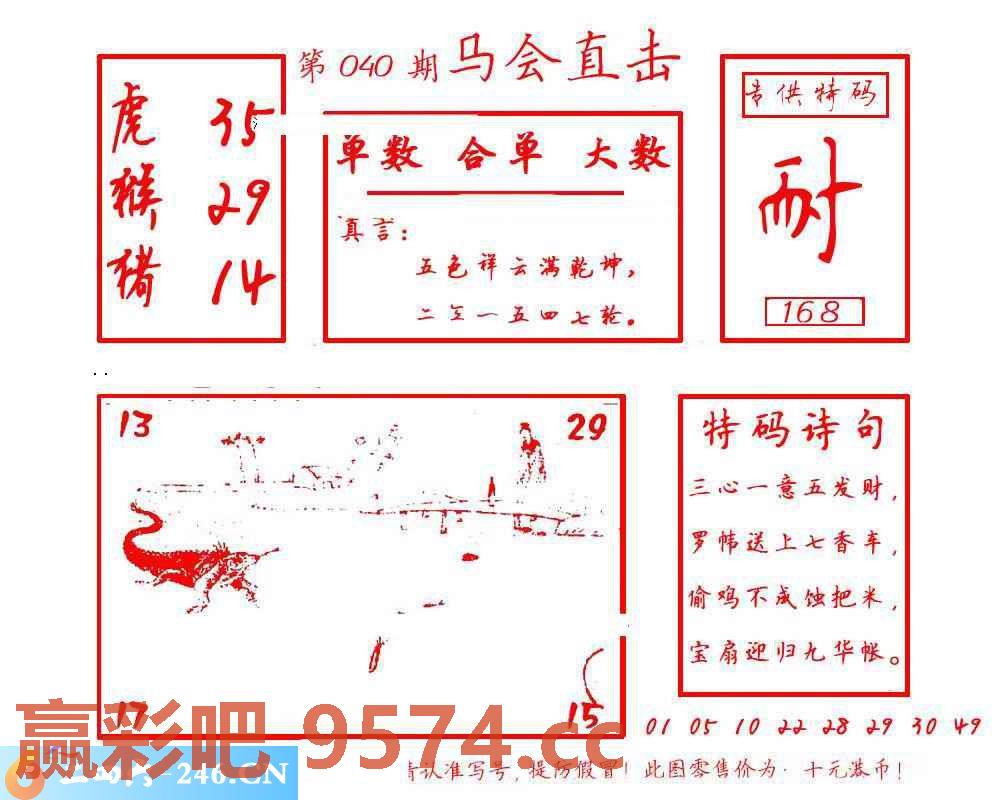 第 040 期 马会直击
虎 35
猴 29
猪 14
单数 合单 大数
真言：
五色祥云满乾坤，
二三一五四七轮。
专供特码
耐
168
13
29
17
15
特码诗句
三心一意五发财，
罗帏送上七香车，
偷鸡不成蚀把米，
宝扇迎归九华帐。
01 05 10 22 28 29 30 49
赢彩吧 9574.cc
-246.CN
请认准写号，提防假冒！此图零售价为·十元港币！